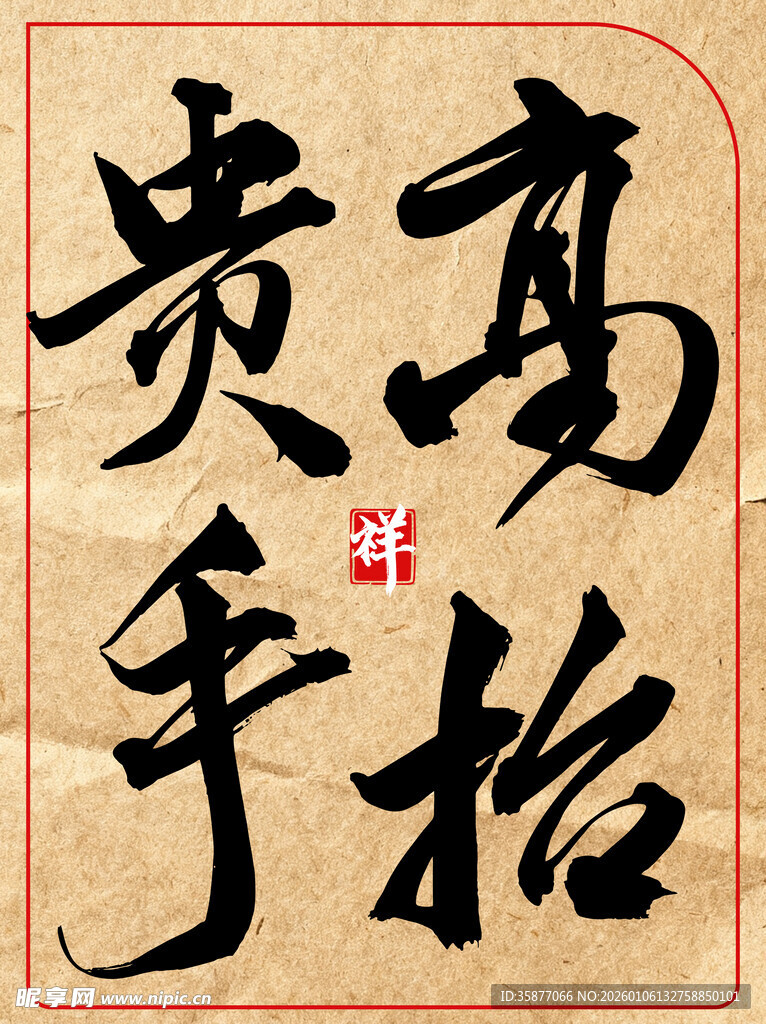 高抬
贵手
祥
昵享网 www.nipic.cn
ID:35877066 NO:20260106132758850101